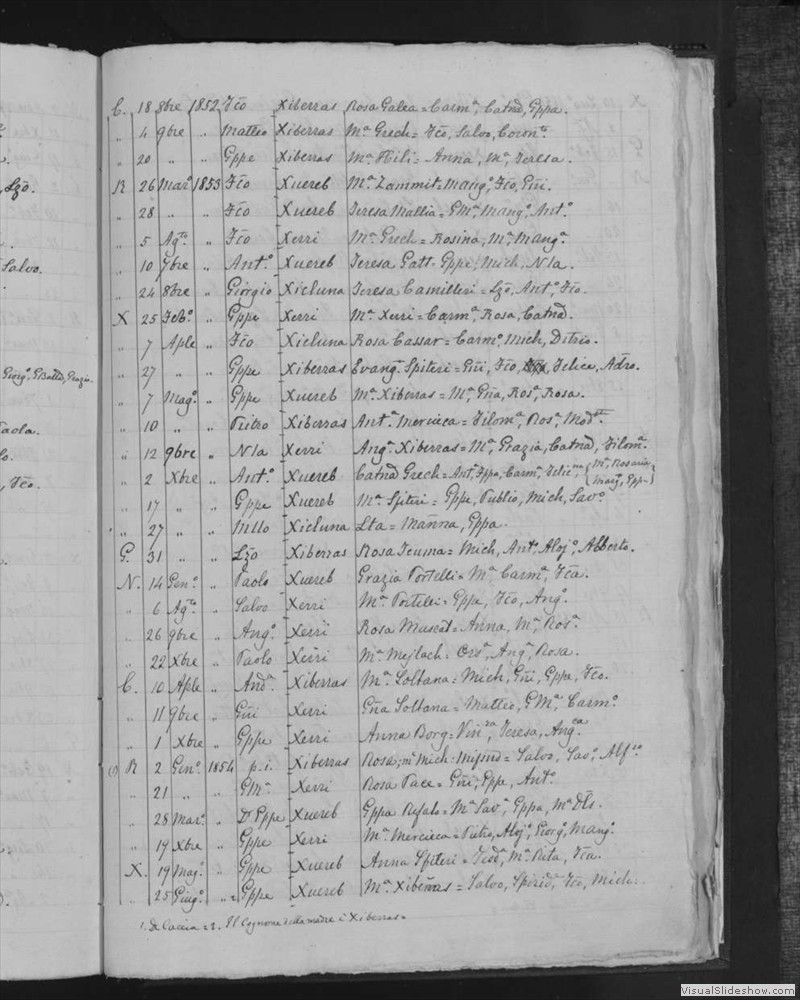 C. 18 8bre 1852 Fco Xiberras Rosa Galea = Carm.a, Catnd, Gppa.
" 4 9bre " Matteo Xiberras M.a Grech = Fco, Salvo,
" 20 " " Gppe Xiberras M.a = Anna, M.a, Teresa.
R 26 Mar.o 1853 Fco Xuereb M.a Zammit = Mang.o, Fco, Gñi.
" 28 " " Fco Xuereb Teresa Mallia = GM.a, Mang.o, Ant.o
" 5 Ag.to " Fco Xerri M.a Grech = Rosina, M.a, Mang.a
" 10 7bre " Ant.o Xuereb Teresa Gatt = Gppe, Mich, Nla.
" 24 8bre " Giorgio Xicluna Teresa Camilleri = Lzo, Ant.o, Fco.
X 25 Feb.o " Gppe Xerri M.a Xeri = Carm.a, Rosa, Catnd.
" 7 Aple " Fco Xicluna Rosa Cassar = Carm.o, Mich,
" 27 " " Gppe Xiberras Evang.a Spiteri = Gñi, Fco, Felice,
" 7 Mag.o " Gppe Xuereb M.a Xiberras = M.a, Gña, Ros.a, Rosa.
" 10 " " Pietro Xiberras Ant.a Mercieca = Filom.a, Ros.a,
" 12 9bre " Nla Xerri Ang.a Xiberras = M.a, Grazia, Catnd, Filom.a
" 2 Xbre " Ant.o Xuereb Catnd Grech = Ant.a, Gppa, Carm.a, {M.a, Rosaria,
Mang.a, Gppe}
" 17 " " Gppe Xuereb M.a Spiteri = Gppe, Publio, Mich, Sav.o
" 27 " " Mllo Xicluna Lta = Manna, Gppa.
G. 31 " " Lzo Xiberras Rosa Tcuma = Mich, Ant.o, Aloj.o, Alberto.
N. 14 Gen.o " Paolo Xuereb Grazia Portelli = M.a Carm.a, Fca.
" 6 Ag.to " Salvo Xerri M.a Portelli = Gppe, Fco, Ang.o
" 26 9bre " Ang.o Xerri Rosa Muscat = Anna, M.a, Ros.a
" 22 Xbre " Paolo Xerri M.a Mejlach = Ors.a, Ang.a, Rosa.
C. 10 Aple " And.a Xiberras M.a Soltana = Mich, Gñi, Gppe, Fco.
" 11 9bre " Gñi Xerri Gña Soltana = Matteo, GM.a, Carm.o
" 1 Xbre " Gppe Xerri Anna Borg = Vin.za, Teresa, Ang.ca
(1) R 2 Gen.o 1854 p.i. Xiberras Rosa; Mich Mifsud = Salvo, Sav.o, Alf.so
" 21 " " GM.a Xerri Rosa Pace = Gñi, Gppe, Ant.o
" 28 Mar.o " Dr Gppe Xuereb Gppa Refalo = M.a Sav.a, Gppa, M.a Dls.
" 17 Xbre " Gppe Xerri M.a Mercieca = Pietro, Aloj.o, Giorg.o, Mang.o
X. 19 Mag.o " Gppe Xuereb Anna Spiteri = M.a Rita, Fca.
" 25 Giug.o " Gppe Xuereb M.a Xiberras = Salvo, Spirid.e, Fco, Mich.
1. di Caccia = 2. Il Cognome della madre è Xiberras =
Lzo.
Salvo.
Giorg.o, GBatta, Grazia.
Paola.
, Fco.
VisualSlideshow.com